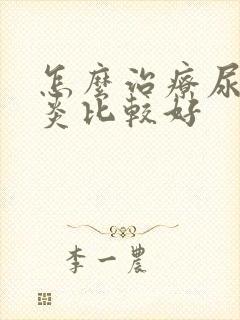 怎麼治療尿
炎比較好
李一農